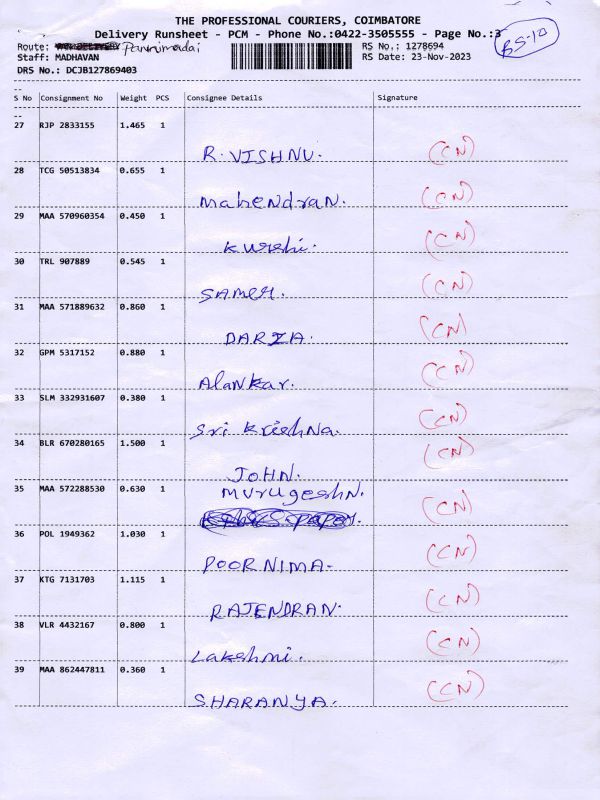 THE PROFESSIONAL COURIERS, COIMBATORE
Delivery Runsheet - PCM - Phone No.:0422-3505555 - Page No.:3
BS-10
Route: Pannimadai
RS No.: 1278694
Staff: MADHAVAN
RS Date: 23-Nov-2023
DRS No.: DCJB127869403
S No Consignment No Weight PCS Consignee Details Signature
27 RJP 2833155 1.465 1
R. VISHNU. (CN)
28 TCG 50513834 0.655 1
Mahendran. (CN)
29 MAA 570960354 0.450 1
(CN)
30 TRL 907889 0.545 1
(CN)
31 MAA 571889632 0.860 1
(CN)
32 GPM 5317152 0.880 1
Alankar. (CN)
33 SLM 332931607 0.380 1
Sri Krishna. (CN)
34 BLR 670280165 1.500 1 (CN)
JOHN.
35 MAA 572288530 0.630 1
Murugesh N. (CN)
36 POL 1949362 1.030 1
POORNIMA. (CN)
37 KTG 7131703 1.115 1
RAJENDRAN. (CN)
38 VLR 4432167 0.800 1
Lakshmi. (CN)
39 MAA 862447811 0.360 1
SHARANYA. (CN)